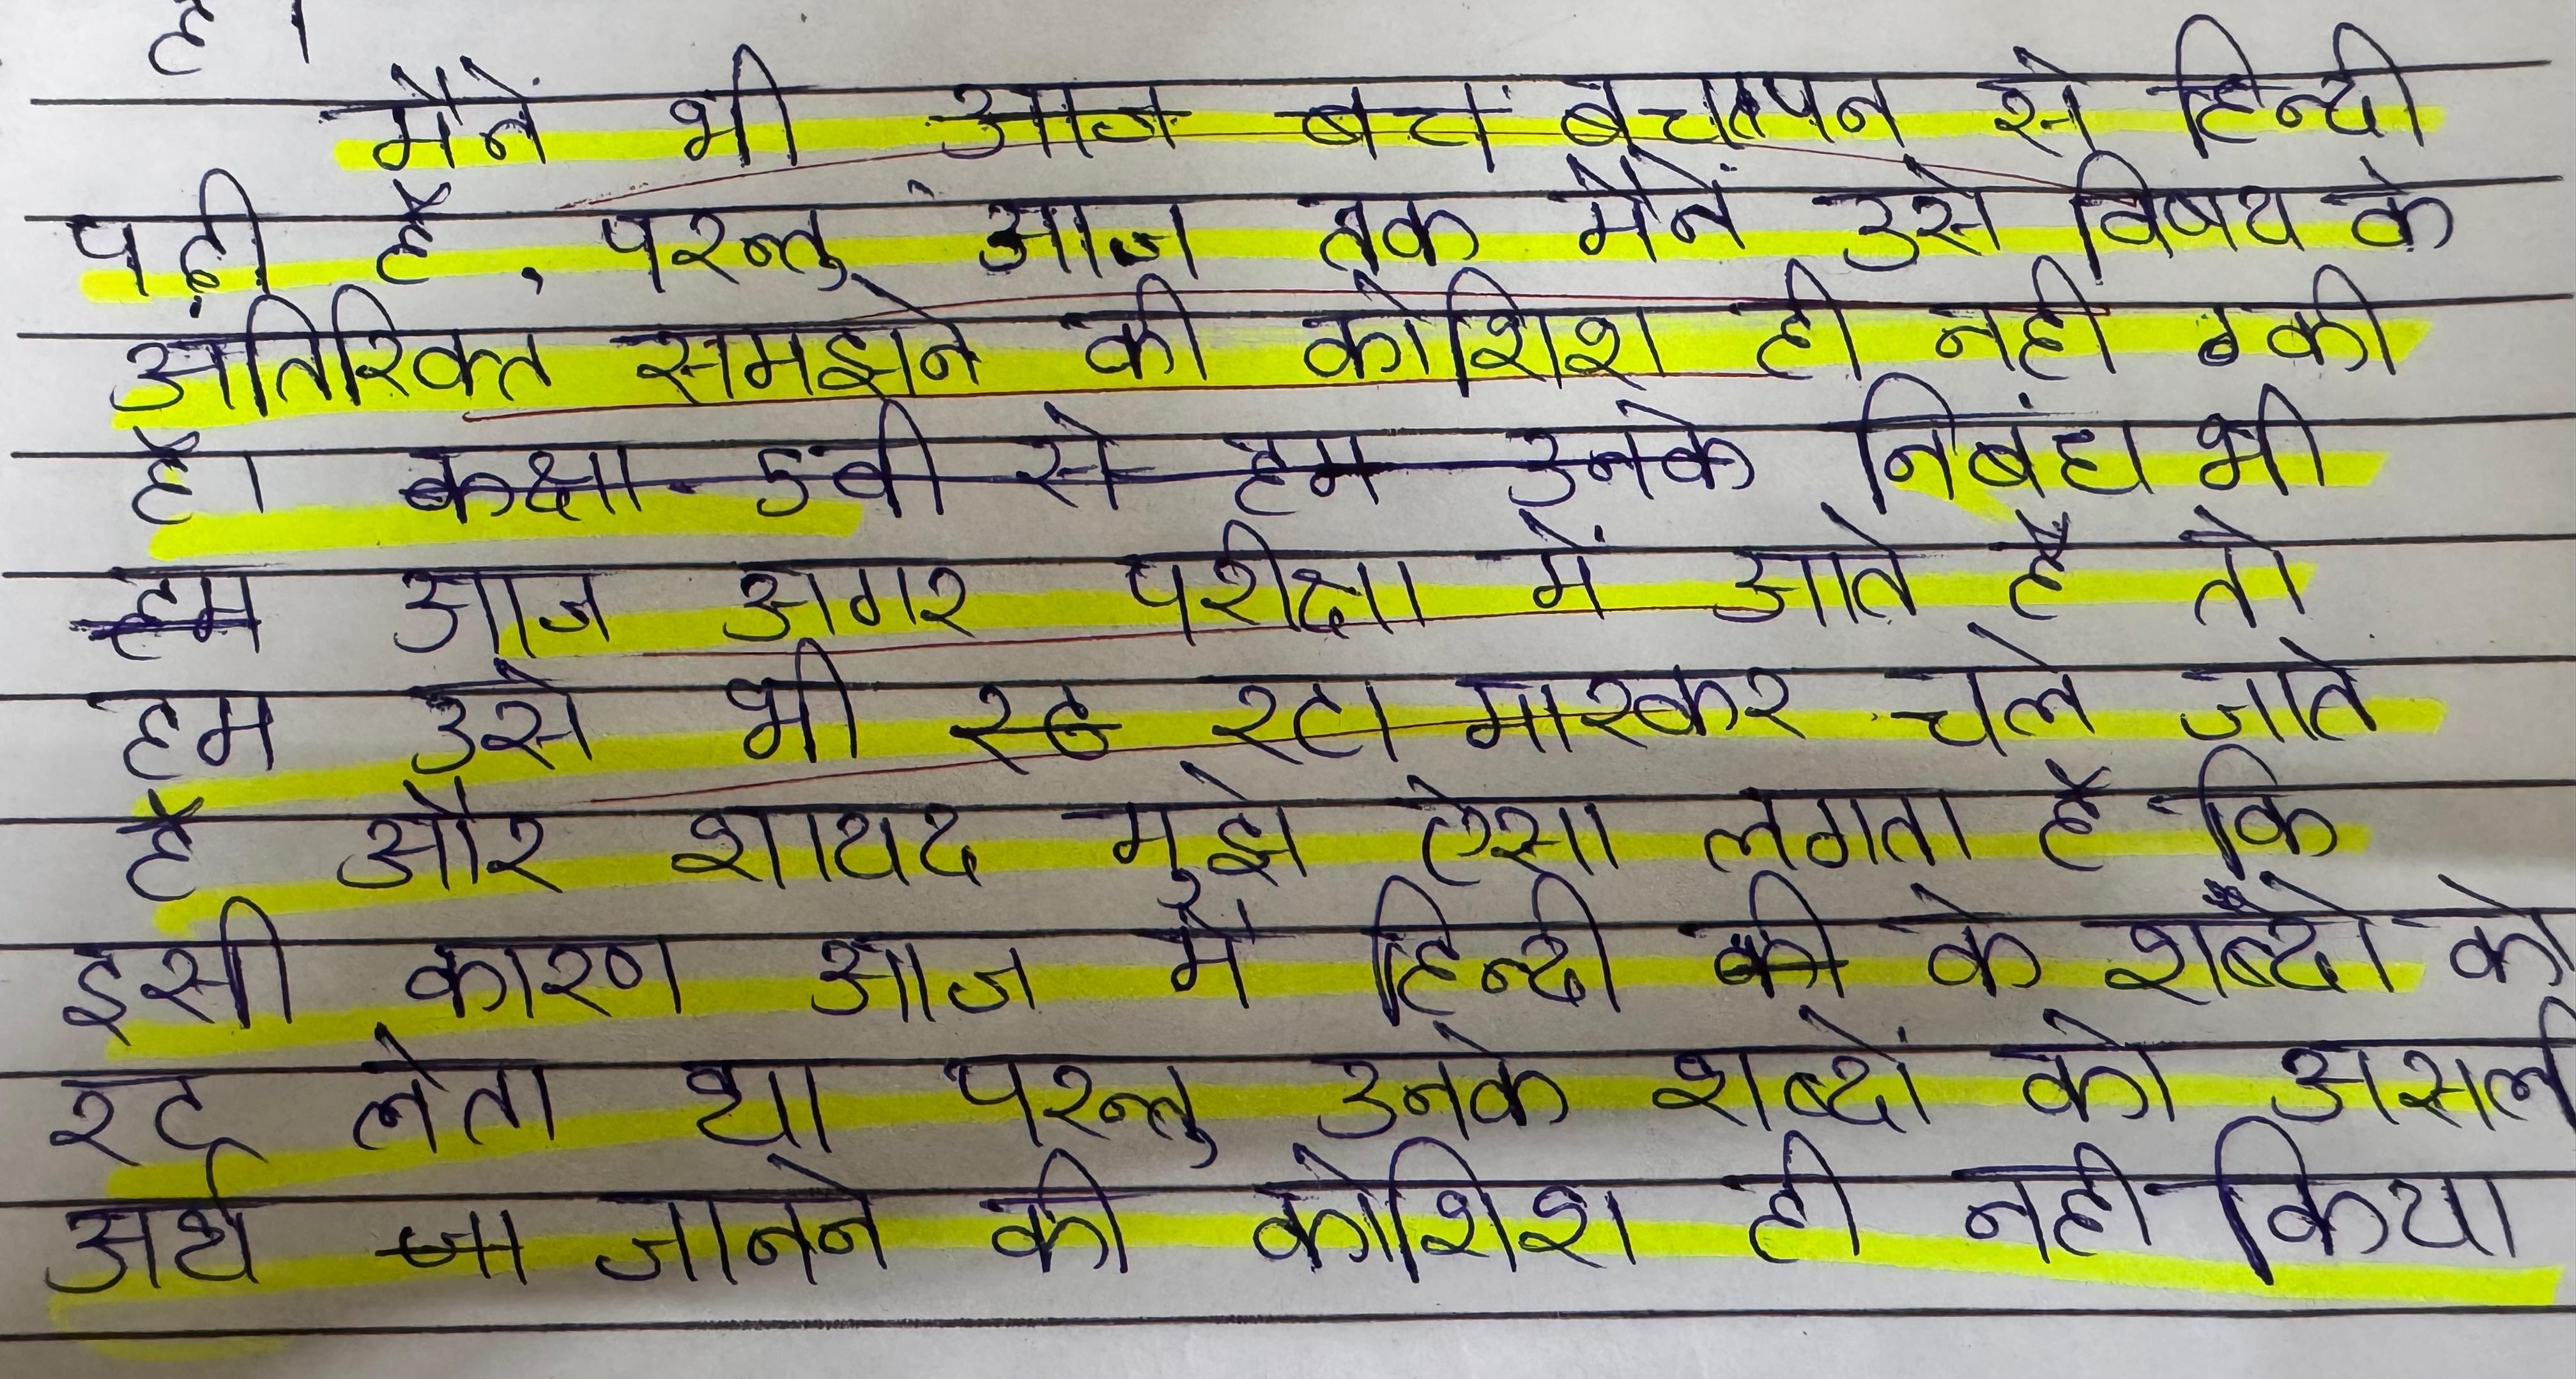 है।
मैनें भी आज बच बचपन से हिन्दी
पढ़ी है, परन्तु आज तक मैनें उसे विषय के
अतिरिक्त समझने की कोशिश ही नही की
है। कक्षा 5वी से हम उनके निबंध भी
हम आज अगर परीक्षा में आते है तो
हम उसे भी रठ रटा मारकर चले जाते
है और शायद मुझे ऐसा लगता है कि
इसी कारण आज मैं हिन्दी की के शब्दो को
रट लेता था परन्तु उनके शब्दों को असली
अर्थ जा जानने की कोशिश ही नही किया